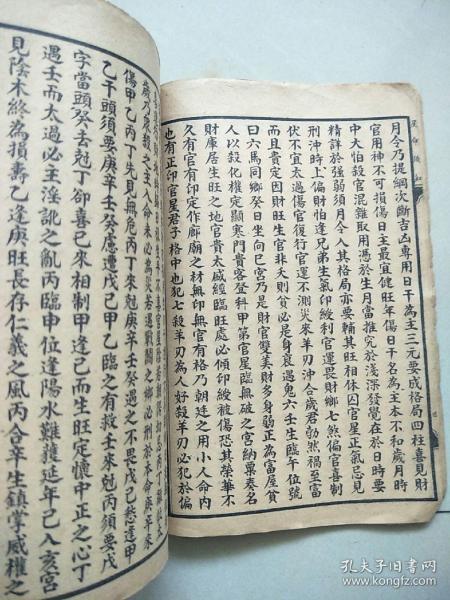 月令乃提綱次斷吉凶專用日干為主三元要成格局四柱喜見財
官用神不可損傷日主最宜健旺年傷日干名為主本不和歲月時
中大怕殺官混雜取用憑於生月當推究於淺深發覺在於日時要
精詳於強弱須月令入其格局亦要輔其旺相休囚官星正氣忌見
刑沖時上偏財怕逢兄弟生氣印綬利官運畏財鄉七煞偏官喜制
伏不宜太過傷官復行官運不測災來羊刃沖合歲君勃然禍至富
而且貴定因財旺生官非夭則貧必是身衰遇鬼六壬生臨午位號
曰六馬同鄉癸日坐向巳宮乃是財官雙美財多身弱正為富屋貧
人以殺化權定顯寒門貴客登科甲第官星臨無破之宮納粟奏名
財庫居生旺之地官貴太盛纔臨旺處必傾印綬被傷恐其榮華不
久有官有印定作廊廟之材無印無官有格乃朝廷之用小人命內
也有正印官星君子格中也犯七殺羊刃為人好殺羊刃必犯於偏
歲乃眾殺之主入命未必為災若遇戰鬪之鄉必刑於本命庚辛來
傷甲乙丙丁先見無危丙丁來剋庚辛壬癸遇之不畏戊己愁逢甲
乙干頭須要庚辛壬癸慮遭戊己甲乙臨之有救壬來剋丙須要戊
字當頭癸去尅丁卻喜己來相制甲逢己而生旺定懷中正之心丁
遇壬而太過必主淫訛之亂丙臨申位逢陽水難護延年己入亥宮
見陰木終為損壽乙逢庚旺長存仁義之風丙合辛生鎮掌威權之
孔夫子旧书网
book.kongfz.com